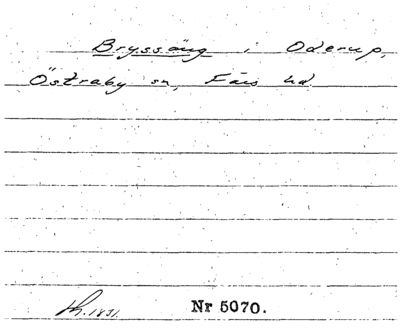 Bryssäng i Oderup,
Östraby sn, Färs hd.
Th. 1831. Nr 5070.